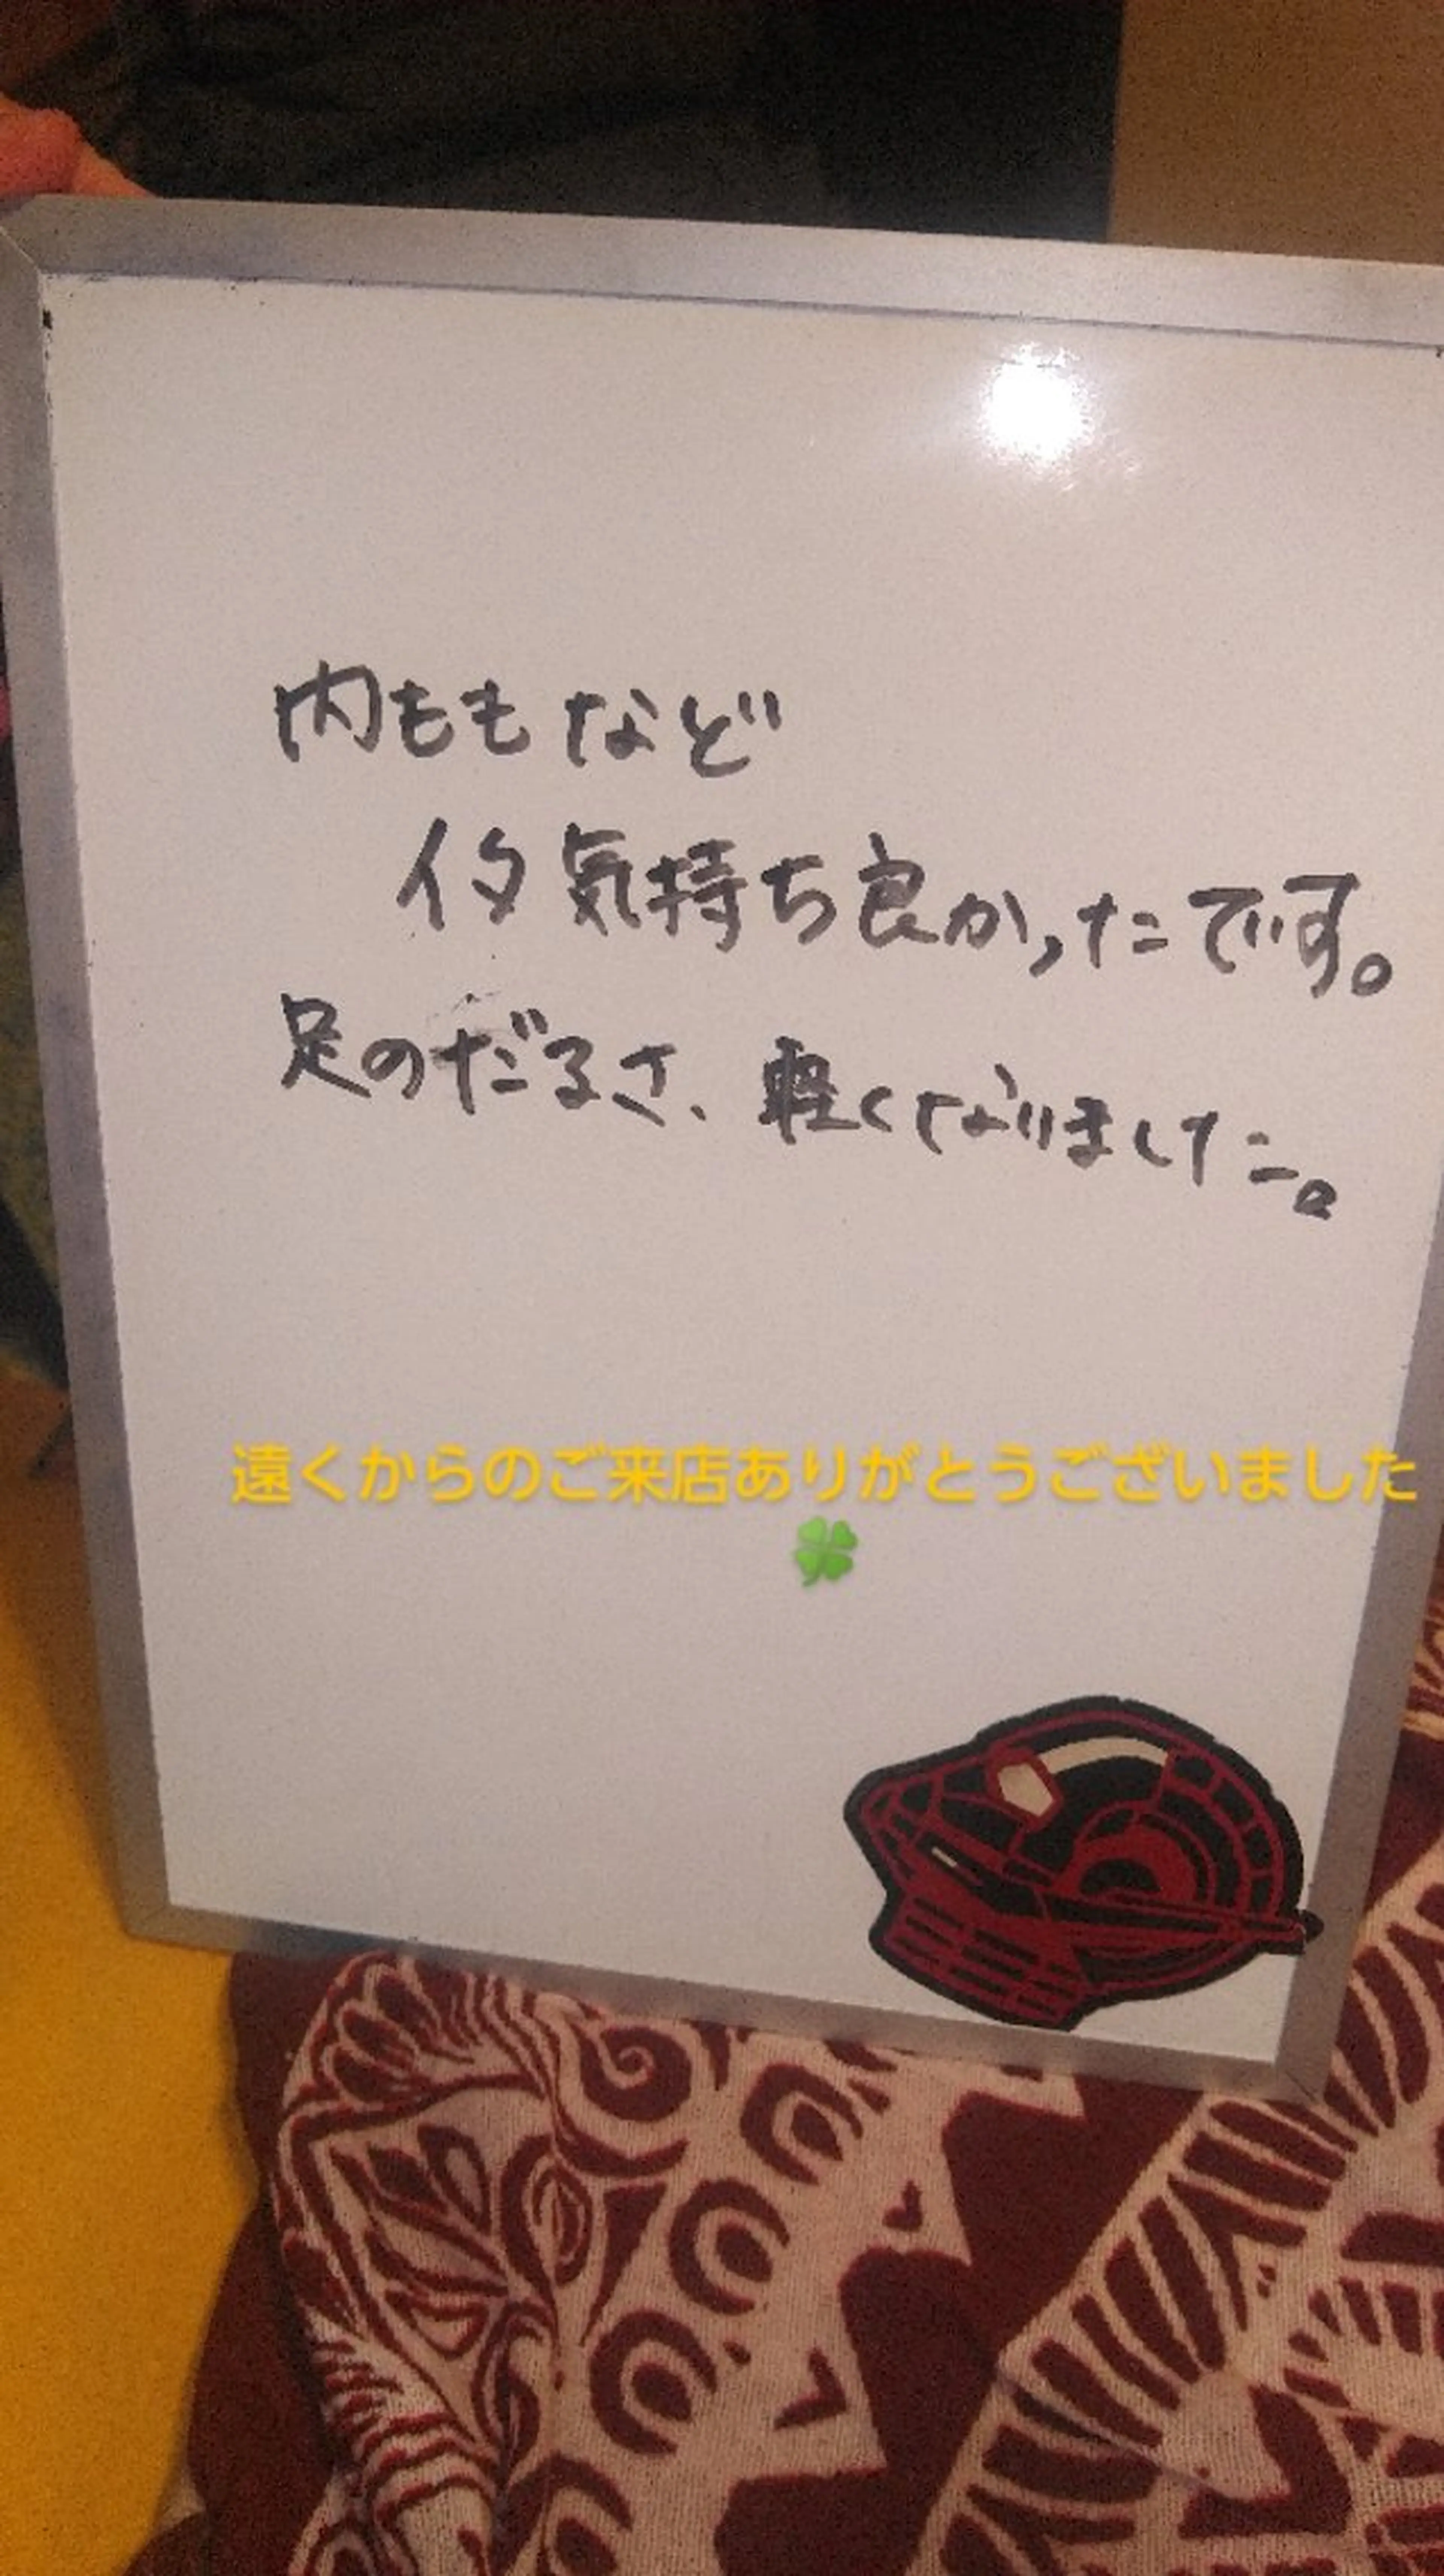 内ももなど
イタ気持ち良かったです。
足のだるさ、軽くなりました。
遠くからのご来店ありがとうございました
🍀